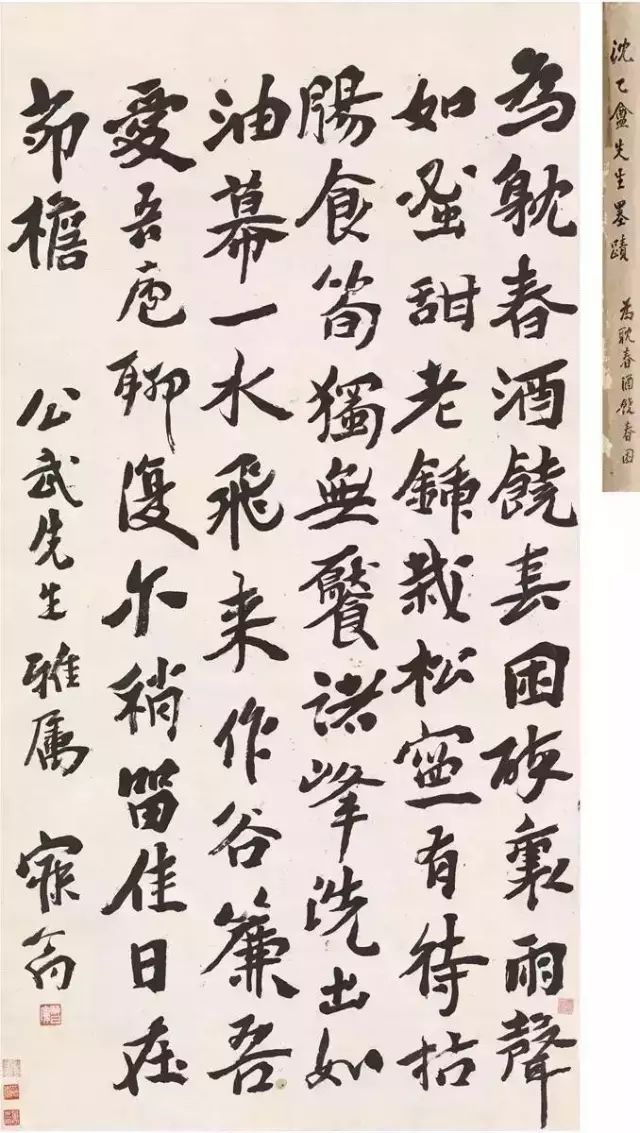 為躭春酒饒春困被裏雨聲
如蜜甜老鍤栽松寧有待枯
腸食筍獨無饜諸峰洗出如
油幕一水飛来作谷簾吾
愛吾廬聊復尒稍留佳日在
茆檐
公武先生雅屬 寐翁
沈乙盦先生墨蹟 為耽春酒饒春困